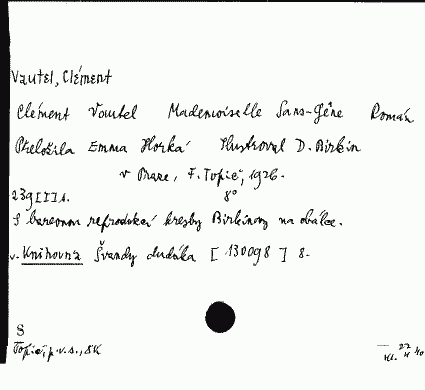 Vautel, Clément
Clément Vautel Mademoiselle Sans-Gêne Román
Přeložila Emma Horká Ilustroval D. Birkin
v Praze, F. Topič, 1926.
239[I] s. 8°
S barevnou reprodukcí kresby Birkinovy na obálce.
v. Knihovna Švandy dudáka [130098] 8.
S
Topič, p.v.s., SK